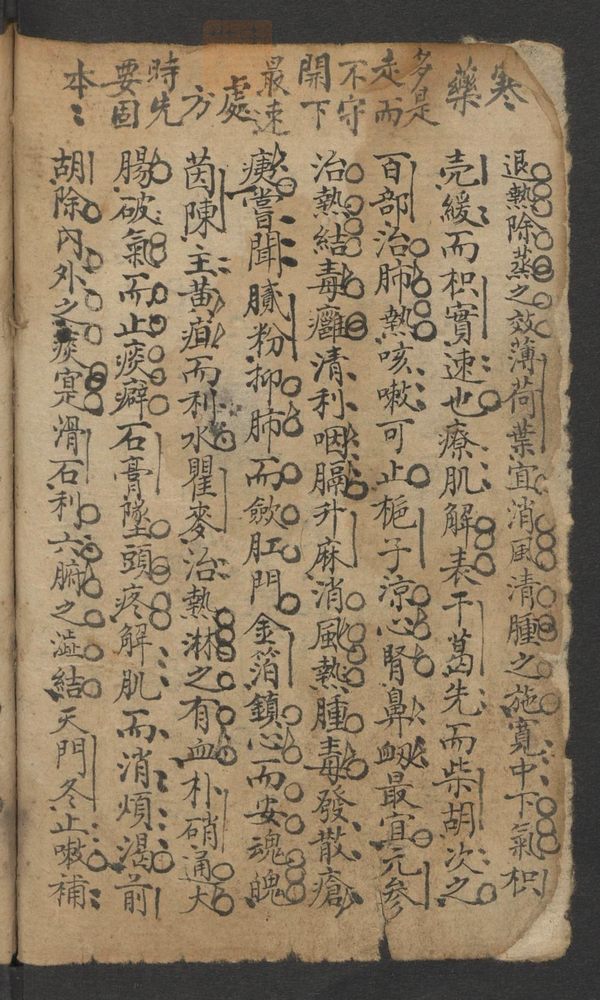 寒
藥
多是
走而
不守
開下
最速
處
方
時先
要固
本〻
退熱除蒸之效薄荷葉宜消風清腫之施寬中下氣枳
壳緩而枳實速也療肌解表干葛先而柴胡次之
百部治肺熱咳嗽可止梔子涼心腎鼻衂最宜元參
治熱結毒癰清利咽膈升麻消風熱腫毒發散瘡
痍嘗聞膩粉抑肺而斂肛門金箔鎮心而安魂魄
茵陳主黃疸而利水瞿麥治熱淋之有血朴硝通大
腸破氣而止痰癖石膏墜頭疼解肌而消煩渴前
胡除內外之痰寔滑石利六腑之澁結天門冬止嗽補